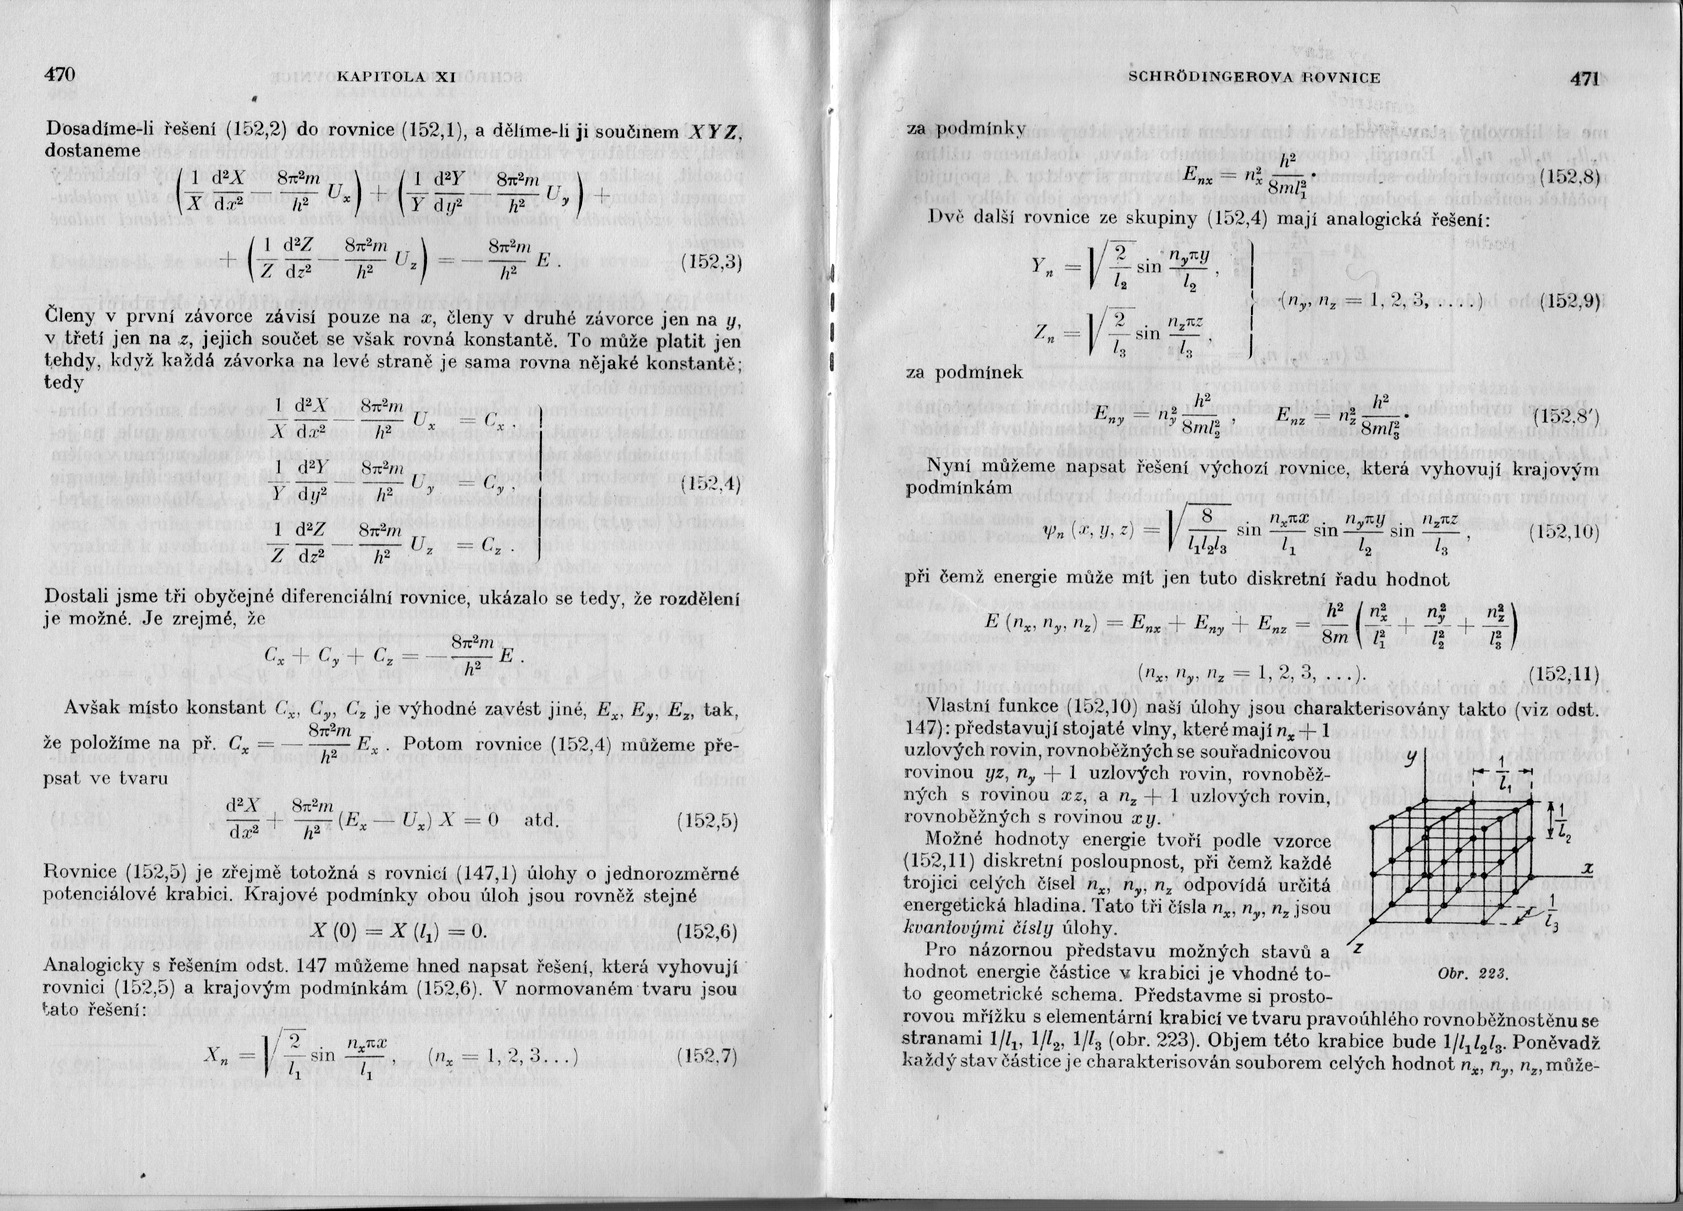 470 KAPITOLA XI
Dosadíme-li řešení (152,2) do rovnice (152,1), a dělíme-li ji součinem XYZ,
dostaneme
(1/X d²X/dx² — 8π²m/h² Uₓ) + (1/Y d²Y/dy² — 8π²m/h² U_y) +
+ (1/Z d²Z/dz² — 8π²m/h² U_z) = — 8π²m/h² E . (152,3)
Členy v první závorce závisí pouze na x, členy v druhé závorce jen na y,
v třetí jen na z, jejich součet se však rovná konstantě. To může platit jen
tehdy, když každá závorka na levé straně je sama rovna nějaké konstantě;
tedy
1/X d²X/dx² — 8π²m/h² Uₓ = Cₓ ,
1/Y d²Y/dy² — 8π²m/h² U_y = C_y , (152,4)
1/Z d²Z/dz² — 8π²m/h² U_z = C_z .
Dostali jsme tři obyčejné diferenciální rovnice, ukázalo se tedy, že rozdělení
je možné. Je zrejmé, že
Cₓ + C_y + C_z = — 8π²m/h² E .
Avšak místo konstant Cₓ, C_y, C_z je výhodné zavést jiné, Eₓ, E_y, E_z, tak,
že položíme na př. Cₓ = — 8π²m/h² Eₓ . Potom rovnice (152,4) můžeme pře-
psat ve tvaru
d²X/dx² + 8π²m/h² (Eₓ — Uₓ) X = 0 atd. (152,5)
Rovnice (152,5) je zřejmě totožná s rovnicí (147,1) úlohy o jednorozměrné
potenciálové krabici. Krajové podmínky obou úloh jsou rovněž stejné
X (0) = X (l₁) = 0. (152,6)
Analogicky s řešením odst. 147 můžeme hned napsat řešení, která vyhovují
rovnici (152,5) a krajovým podmínkám (152,6). V normovaném tvaru jsou
tato řešení:
Xₙ = √(2/l₁) sin nₓπx/l₁ , (nₓ = 1, 2, 3...) (152,7)
SCHRÖDINGEROVA ROVNICE 471
za podmínky
Eₙₓ = nₓ² h²/8ml₁² . (152,8)
Dvě další rovnice ze skupiny (152,4) mají analogická řešení:
Yₙ = √(2/l₂) sin n_yπy/l₂ ,
(n_y, n_z = 1, 2, 3, ....) (152,9)
Zₙ = √(2/l₃) sin n_zπz/l₃ ,
za podmínek
E_ny = n_y² h²/8ml₂² , E_nz = n_z² h²/8ml₃² . (152,8′)
Nyní můžeme napsat řešení výchozí rovnice, která vyhovují krajovým
podmínkám
ψₙ (x, y, z) = √(8/l₁l₂l₃) sin nₓπx/l₁ sin n_yπy/l₂ sin n_zπz/l₃ , (152,10)
při čemž energie může mít jen tuto diskretní řadu hodnot
E (nₓ, n_y, n_z) = Eₙₓ + E_ny + E_nz = h²/8m (nₓ²/l₁² + n_y²/l₂² + n_z²/l₃²)
(nₓ, n_y, n_z = 1, 2, 3, ...). (152,11)
Vlastní funkce (152,10) naší úlohy jsou charakterisovány takto (viz odst.
147): představují stojaté vlny, které mají nₓ + 1
uzlových rovin, rovnoběžných se souřadnicovou
rovinou yz, n_y + 1 uzlových rovin, rovnoběž-
ných s rovinou xz, a n_z + 1 uzlových rovin,
rovnoběžných s rovinou xy.
Možné hodnoty energie tvoří podle vzorce
(152,11) diskretní posloupnost, při čemž každé
trojici celých čísel nₓ, n_y, n_z odpovídá určitá
energetická hladina. Tato tři čísla nₓ, n_y, n_z jsou
kvantovými čísly úlohy.
Pro názornou představu možných stavů a
hodnot energie částice v krabici je vhodné to-
to geometrické schema. Představme si prosto-
y
1/l₁
1/l₂
x
1/l₃
z
Obr. 223.
rovou mřížku s elementární krabicí ve tvaru pravoúhlého rovnoběžnostěnu se
stranami 1/l₁, 1/l₂, 1/l₃ (obr. 223). Objem této krabice bude 1/l₁l₂l₃. Poněvadž
každý stav částice je charakterisován souborem celých hodnot nₓ, n_y, n_z, může-